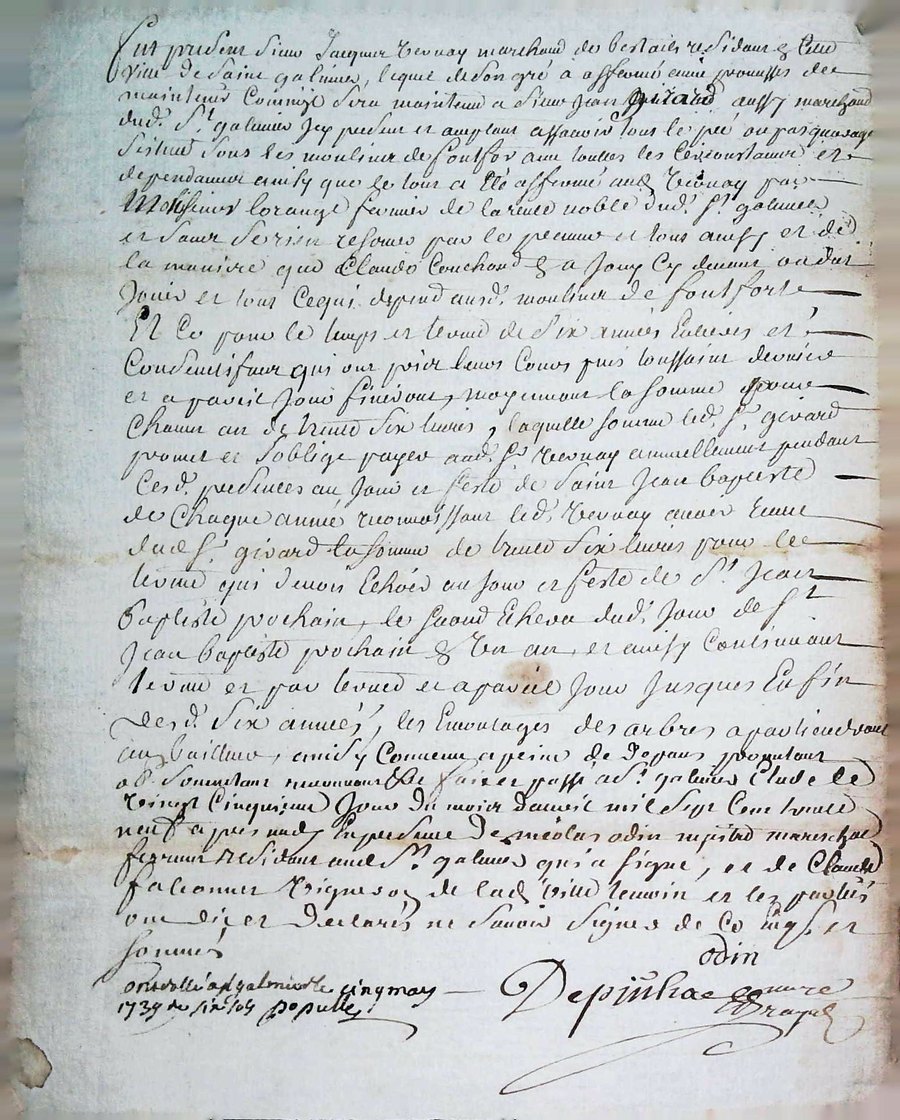 Fut present Sieur Jacques Vernay marchand de bestails residant en lad
ville de Saint galmier, lequel de son gré a affermé avec promesses de
maintenir Comme Sera maintenu a Sieur Jean girard aussy marchand
dud. St. galmier Icy present et acceptant assavoir tout le pré ou pasquerage
Scitué Sous les moulins de fontfor avec toutes les Circonstances et
dependances ainsy que le tout a été affermé aud Vernay par
Messieurs lorange fermier de la rente noble dud. St. galmier
et Sans Se rien reserver par le preneur et tout ainsy et de
la maniere que Claude Couchaud en a Jouy Cy devant ou deut
Jouir et tout Ce qui depend ausd. moulins de fontforte
Et Ce pour le temps et terme de Six années Entieres et
Consecutives qui ont pris leurs Cours puis toussaint derniere
et a pareil Jour finiront, moyennant la somme pour
Chacun an de trente Six livres, laquelle somme led. Sr. girard
promet et S'oblige payer aud. Sr. Vernay annuellement pendant
Cesd. presentes au Jour et feste de Saint Jean baptiste
de Chaque année reconnoissant led. Vernay avoir reçeu
dud Sr. girard la somme de trente Six livres pour le
terme qui devoit Echeoir au Jour et feste de St. Jean
Baptiste prochain, le second Echera dud. Jour de St
Jean baptiste prochain en un an, et ainsy Continuant
terme et par terme et a pareil Jour Jusques En fin
desd. Six années, les Emontages des arbres apartiendront
au bailleur, ainsy Convenu a peine de depans
ob. Soumettant renonçant &c fait et passé a St. galmier Etude le
Vingt Cinquieme Jour du mois d'avril mil Sept Cent trente
neuf apres midy En presence de nicolas odin maistre mareschal
ferrant residant aud St. galmier qui a signé, et de Claude
falconnet Vigneron de lad ville temoin et les parties
ont dit et declarés ne Savoir Signer de Ce enquis et
sommés
odin
Controllé a St galmier le cinq may
1739 Re six sols
Depinhac notaire
Royal